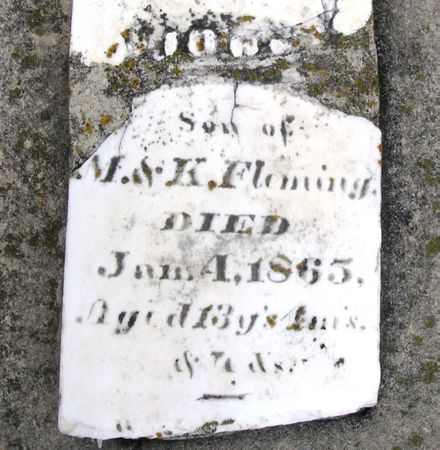 Son of
M. & K. Fleming.
DIED
Jan. 4, 1865,
Aged 13 y's 4 m's.
&